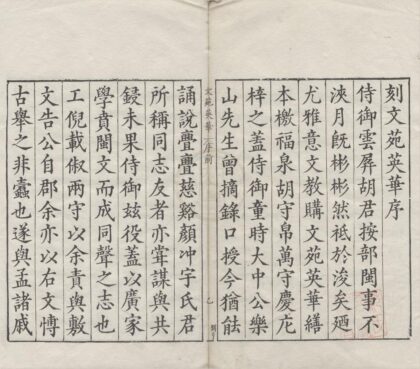 刻文苑英華序
侍御雲屏胡君按部閩事不
浹月旣彬彬然祗於浚矣廼
尤雅意文教購文苑英華繕
本檄福泉胡守帛萬守慶庀
梓之蓋侍御童時大中公樂
山先生曾摘錄口授今猶䏻
文苑英華 序前
誦說亹亹慈谿顏冲宇氏君
所稱同志友者亦嘗謀與共
鋟未果侍御玆役蓋以廣家
學賁閩文而成同聲之志也
工倪載俶兩守以余責與敷
文告公自郡余亦以右文愽
古舉之非蠹也遂與孟諸戚